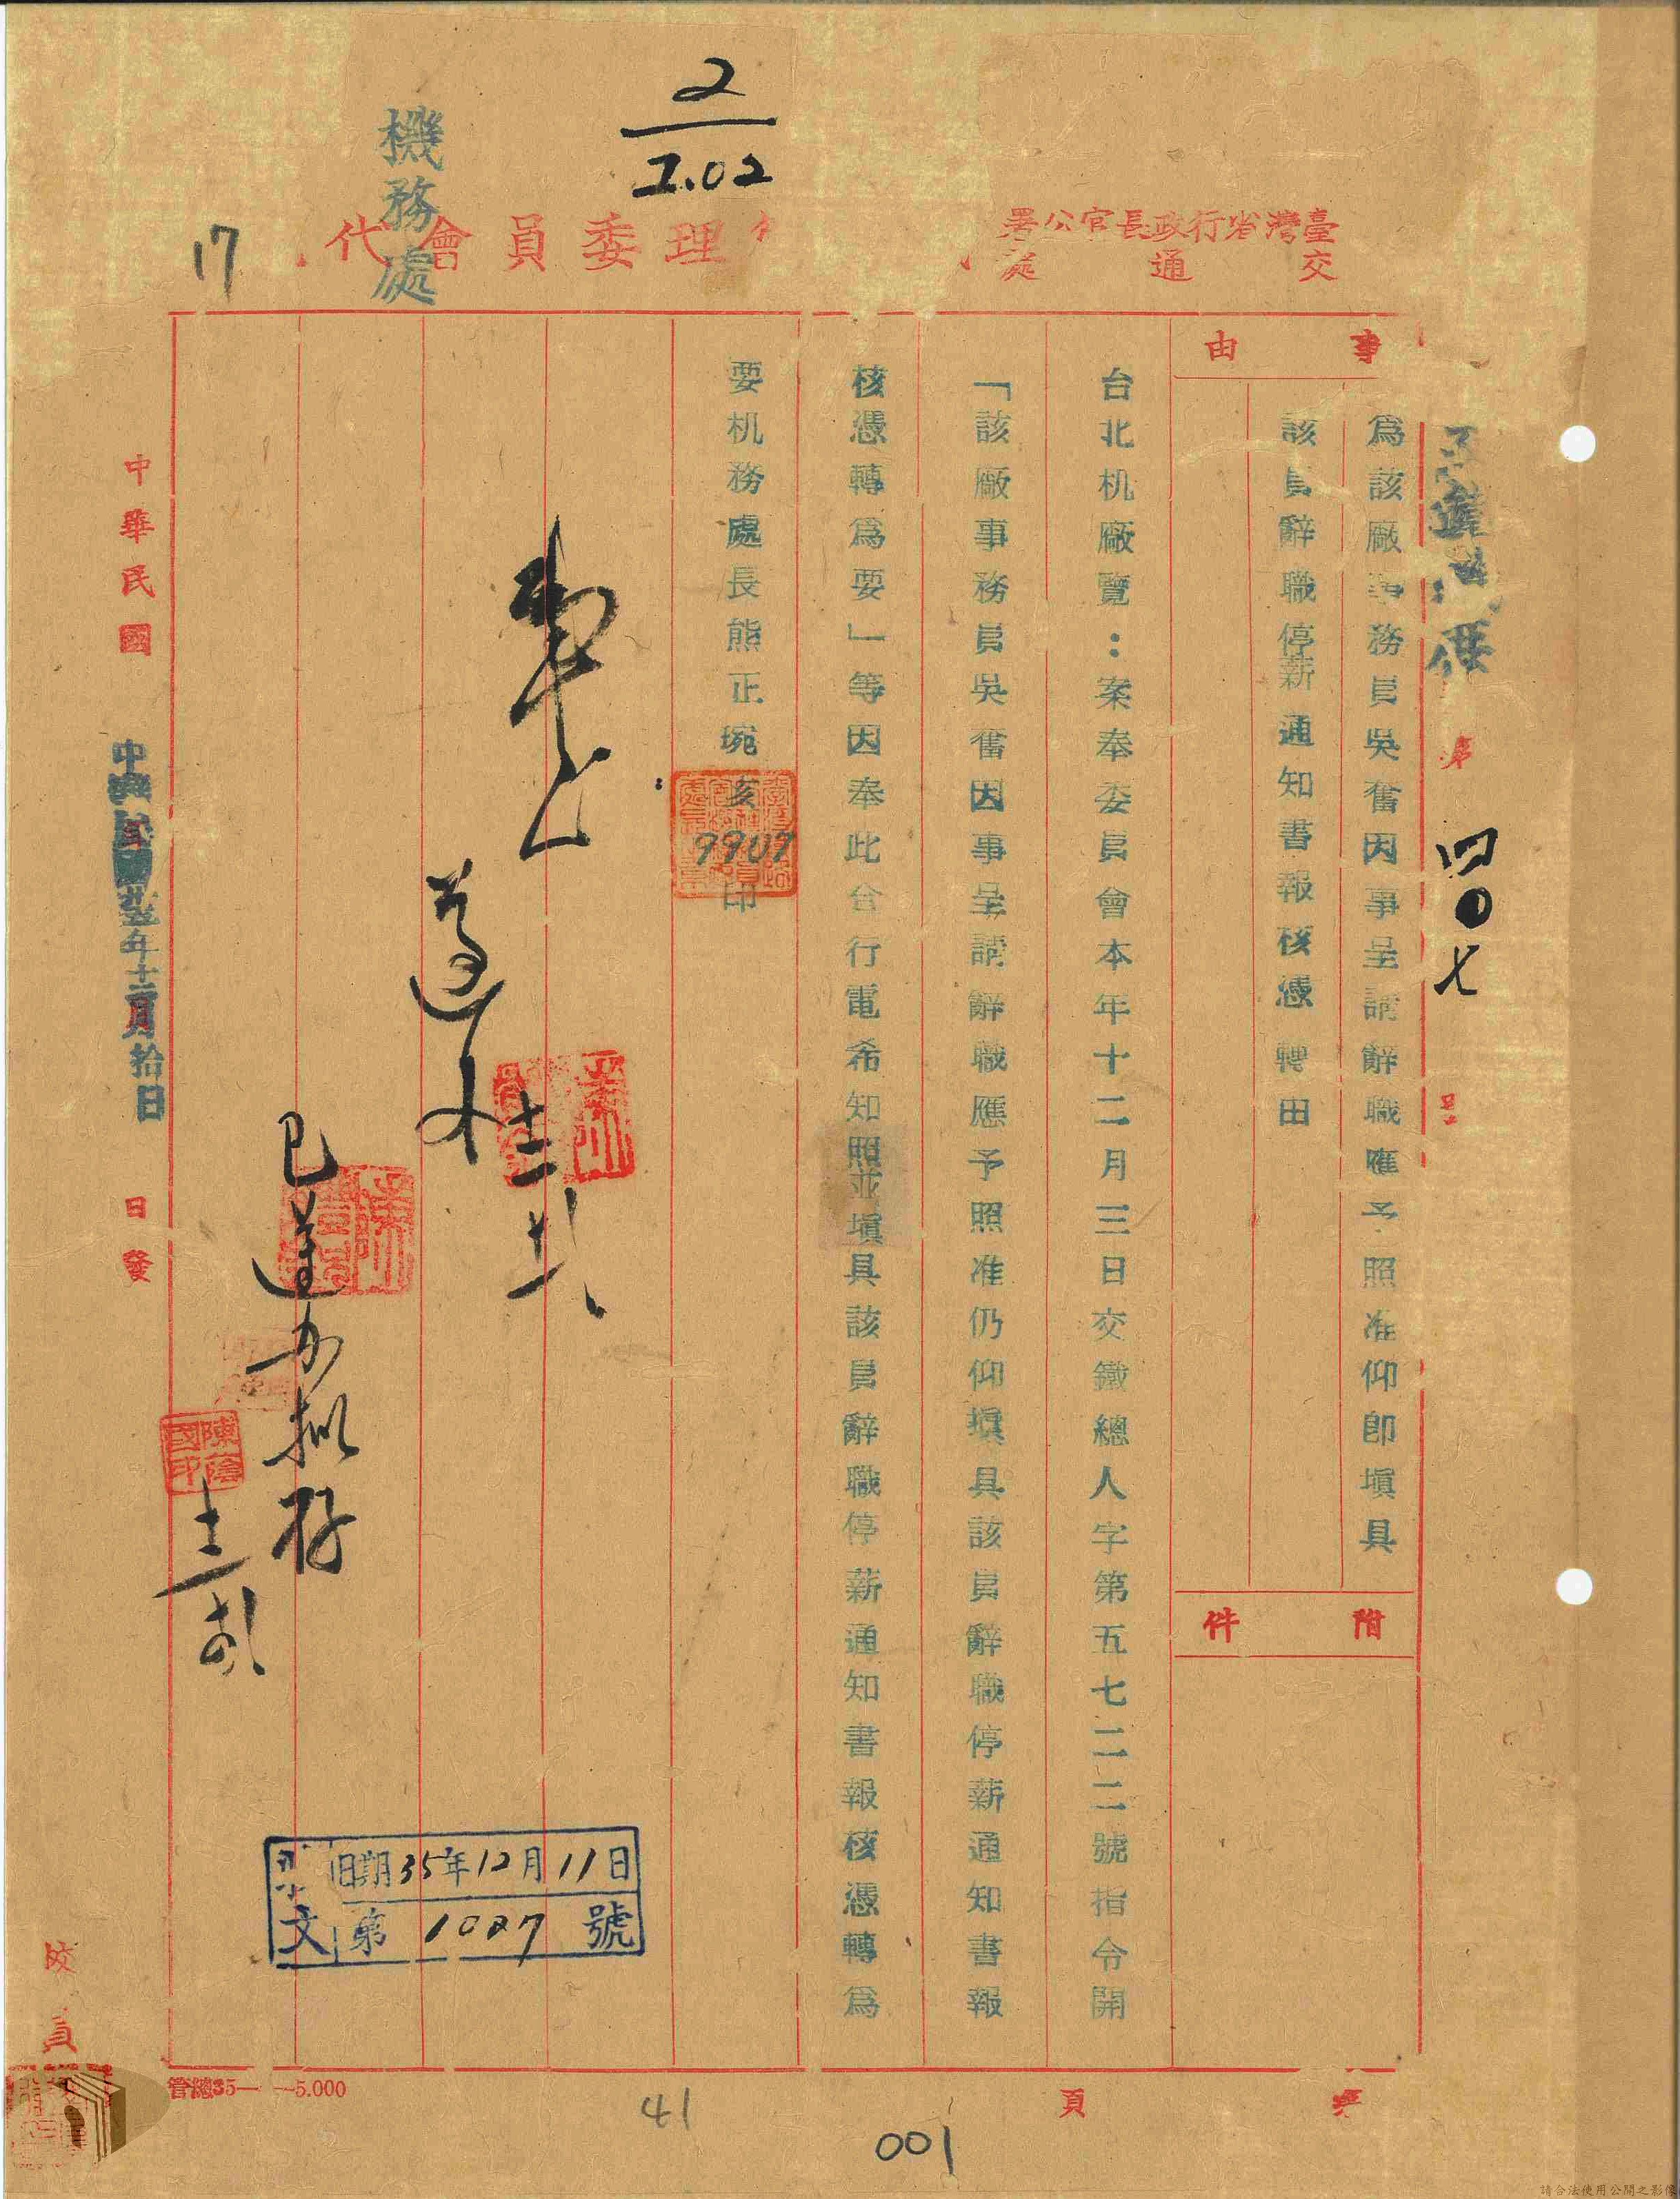 2
7.02
機務處
17
臺灣省行政長官公署
交通處
理委員會代
事由
為該廠事務員吳奮因事呈請辭職應予照准仰即塡具
該員辭職停薪通知書報核憑轉由
附件
第四〇七號
台北机廠覽：案奉委員會本年十二月三日交鐵總人字第五七二二號指令開
「該廠事務員吳奮因事呈請辭職應予照准仍仰塡具該員辭職停薪通知書報
核憑轉為要」等因奉此合行電希知照並塡具該員辭職停薪通知書報核憑轉為
要机務處長熊正琬亥
9907
印
已遵办擬存
陳蔭國印
中華民國
中華民國卅五年十二月拾日
日發
日期35年12月11日
文第1027號
校員
管總35—5.000
頁
41
001
請合法使用公開之影像